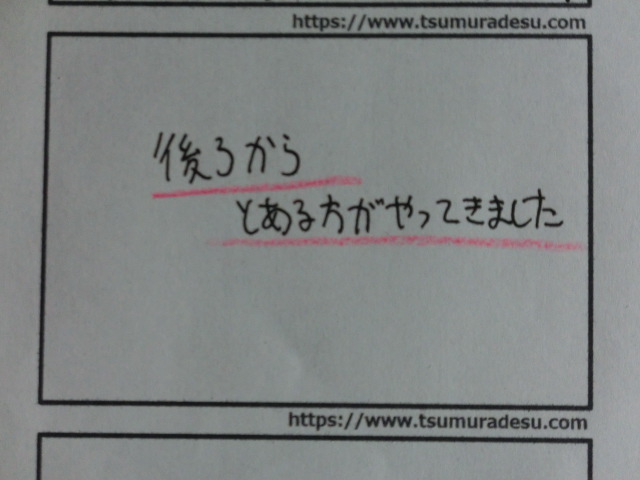 https://www.tsumuradesu.com
後ろから
とある方がやってきました
https://www.tsumuradesu.com